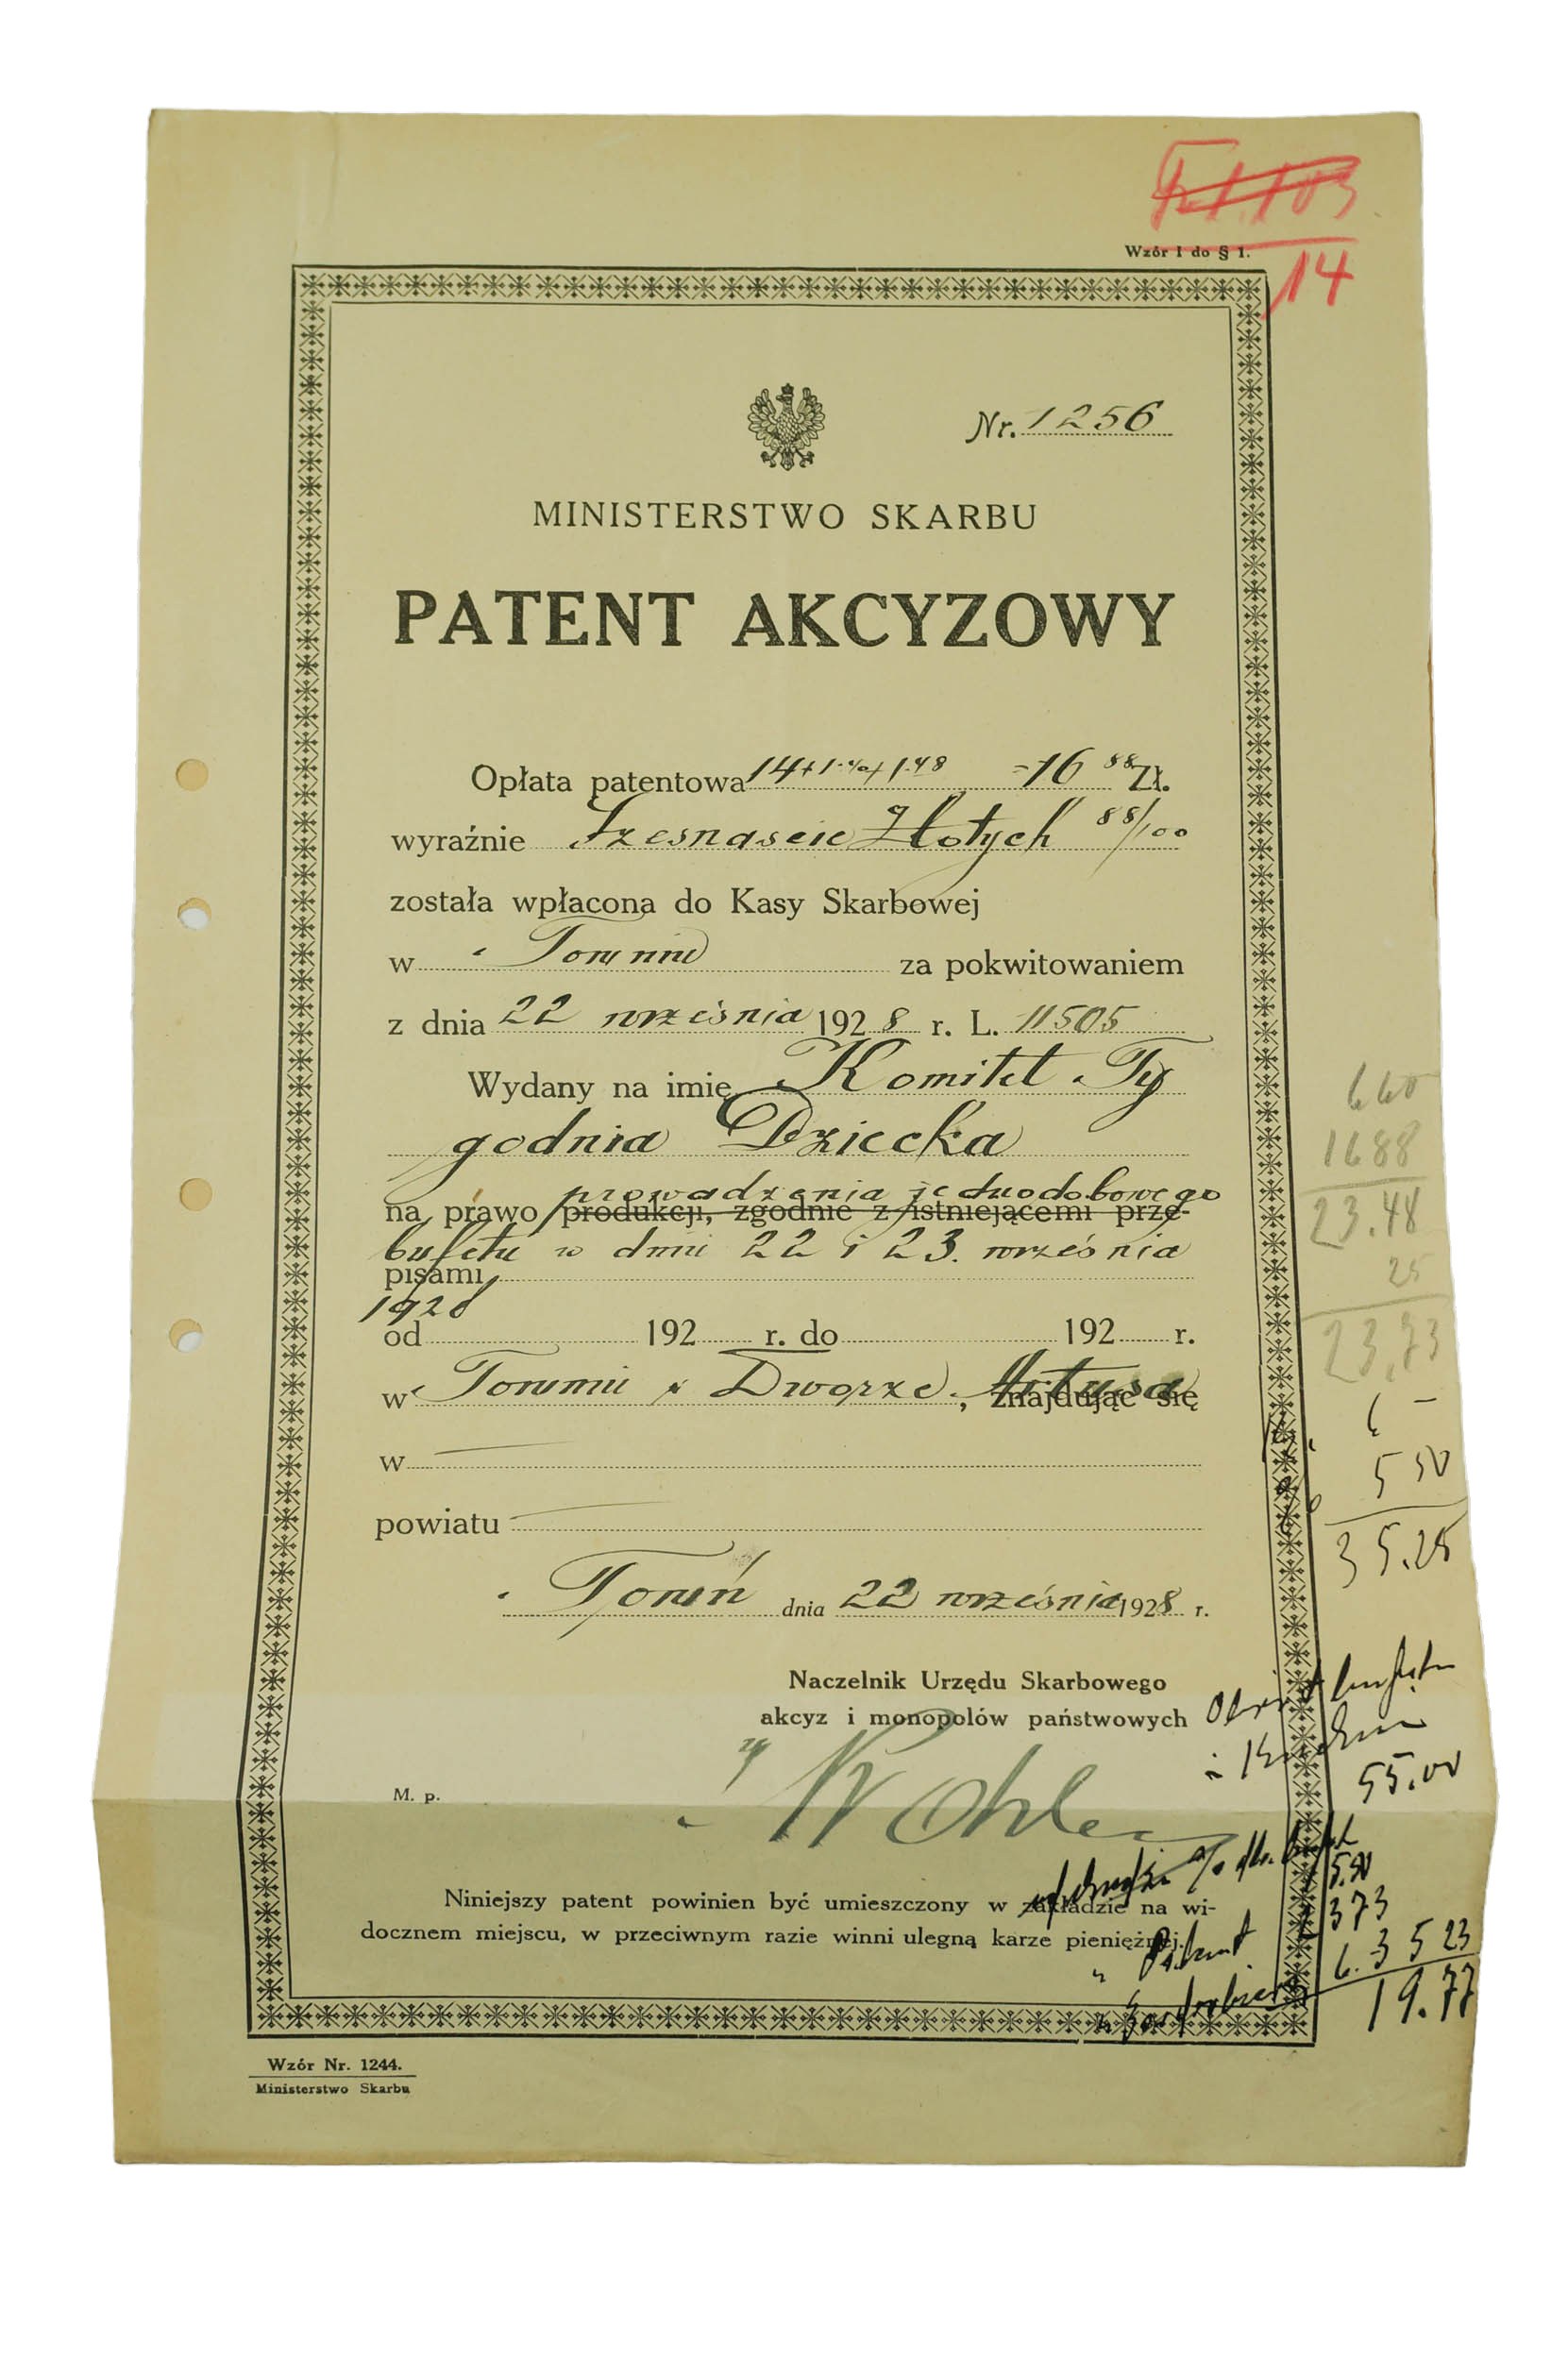 14
Wzór I do § 1.
Nr. 1256
MINISTERSTWO SKARBU
PATENT AKCYZOWY
Opłata patentowa 14+1.40+1.48 =16 88 Zł.
wyraźnie Szesnaście Złotych 88/100
została wpłacona do Kasy Skarbowej
w Toruniu za pokwitowaniem
z dnia 22 września 1928 r. L. 11505
Wydany na imię Komitet Ty
godnia Dziecka
prowadzenia jednodobowego
na prawo produkcji, zgodnie z istniejącemi prze-
bufetu w dniu 22 i 23. września
pisami
1928
od 192 r. do 192 r.
w Toruniu w Dworze Artusa, znajdując się
w
powiatu
Toruń dnia 22 września 1928 r.
Naczelnik Urzędu Skarbowego
akcyz i monopolów państwowych
M. p.
Niniejszy patent powinien być umieszczony w zakładzie na wi-
docznem miejscu, w przeciwnym razie winni ulegną karze pieniężnej.
Wzór Nr. 1244.
Ministerstwo Skarbu
6 60
16 88
23.48
25
23,73
6 –
5 50
35.23
55.00
5.50
373
6.
35 23
19.77